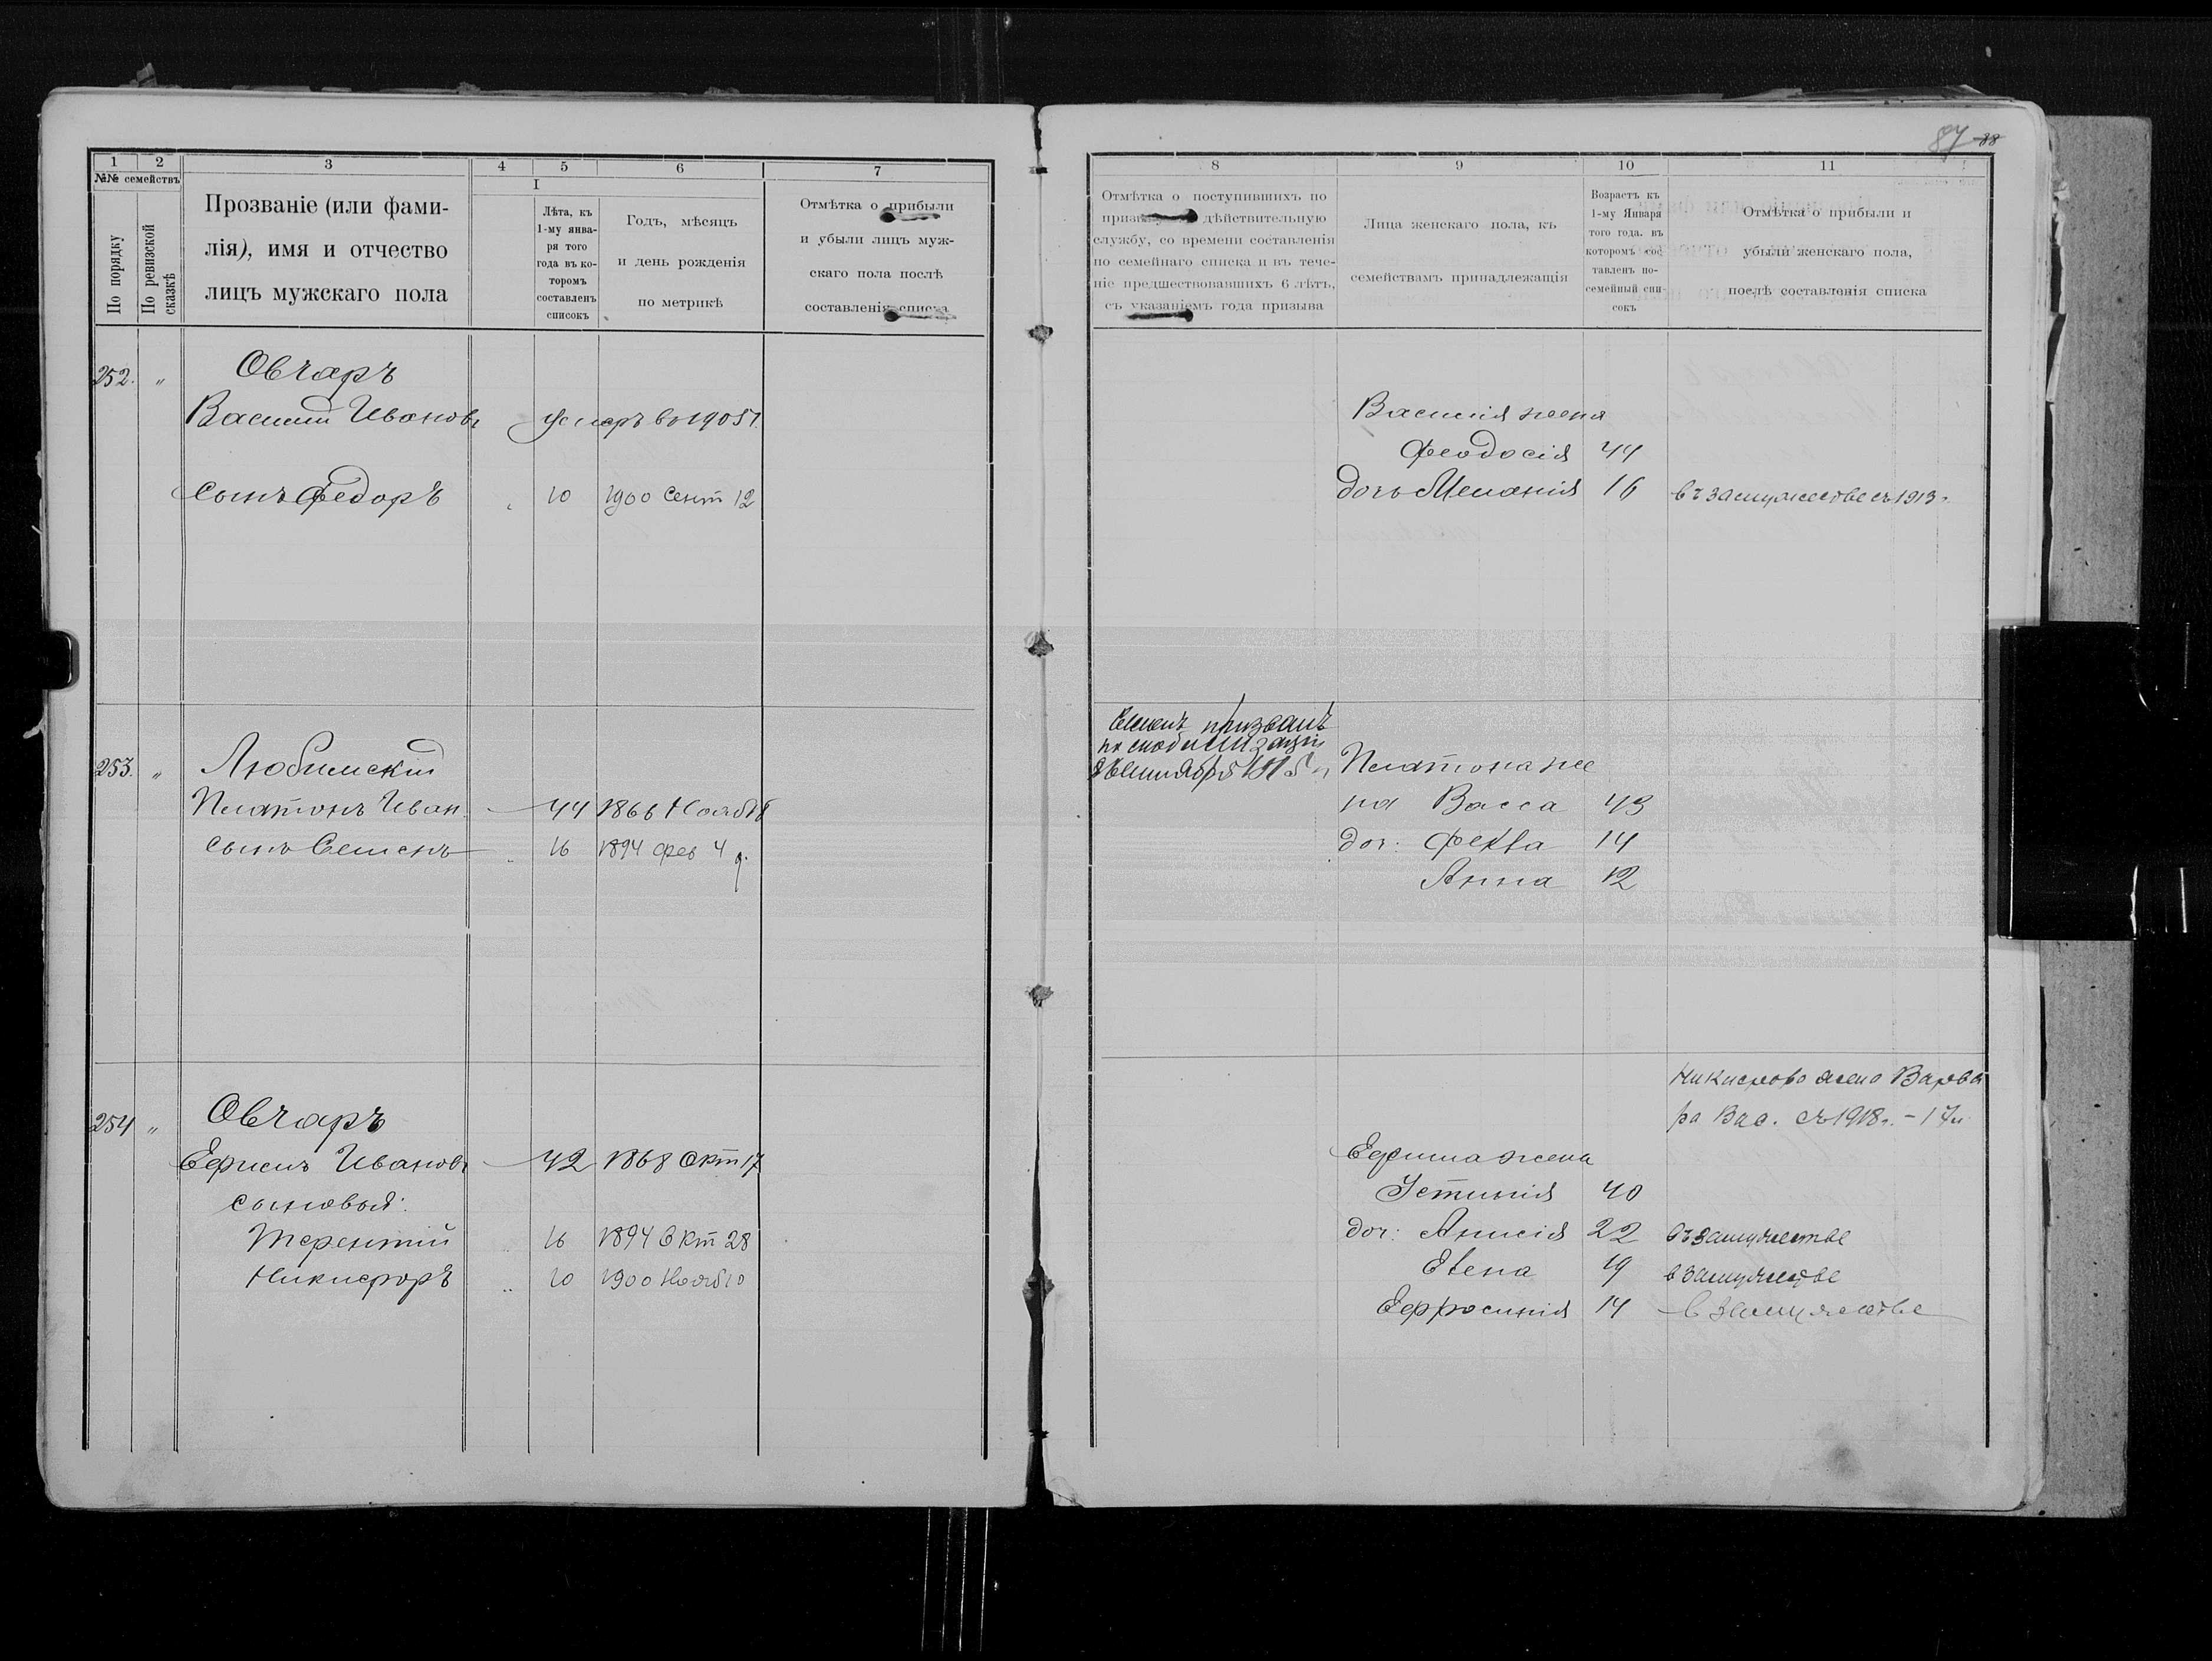 87 88
1 2 3 4 5 6 7
№№ семействъ
По порядку
По ревизской сказкѣ
Прозваніе (или фами-
лія), имя и отчество
лицъ мужскаго пола
I
Лѣта, къ
1-му янва-
ря того
года въ ко-
торомъ
составленъ
списокъ
Годъ, мѣсяцъ
и день рожденія
по метрикѣ
Отмѣтка о прибыли
и убыли лицъ муж-
скаго пола послѣ
составленія списка
8 9 10 11
Отмѣтка о поступившихъ по
дѣйствительную
службу, со времени составленія
по семейнаго списка и въ тече-
ніе предшествовавшихъ 6 лѣтъ,
съ указаніемъ года призыва
Лица женскаго пола, къ
семействамъ принадлежащія
Возрастъ къ
1-му Января
того года. въ
которомъ сос
тавленъ по-
семейный спи-
сокъ
Отмѣтка о прибыли и
убыли женскаго пола,
послѣ составленія списка
252. " Овчаръ
Василій Ивановъ умеръ въ 1905 г.
Сынъ Федоръ 10 1900 Сент 12
Василія жена
Феодосія 44
дочь Меланія 16 въ замужестве съ 1913 г.
253. " Любимскій
Платонъ Иван. 44 1866 Нояб 18
сынъ Семенъ 16 1894 фев 4 д.
Семенъ призванъ
по мобилизаціи
Платона же
на Васса 43
доч: Фекла 14
Анна 12
254 " Овчаръ
Ефимъ Ивановъ 42 1868 Окт 17
сыновья:
Терентій 16 1894 Окт 28
Никифоръ 10 1900 Нояб 10
Никифора жена Варва
ра Вас. съ 1918 г. - 17 л
Ефима жена
Устинія 40
доч: Анисія 22 въ замужестве
Елена 19 в замужестве
Ефросинія 14 в замужестве